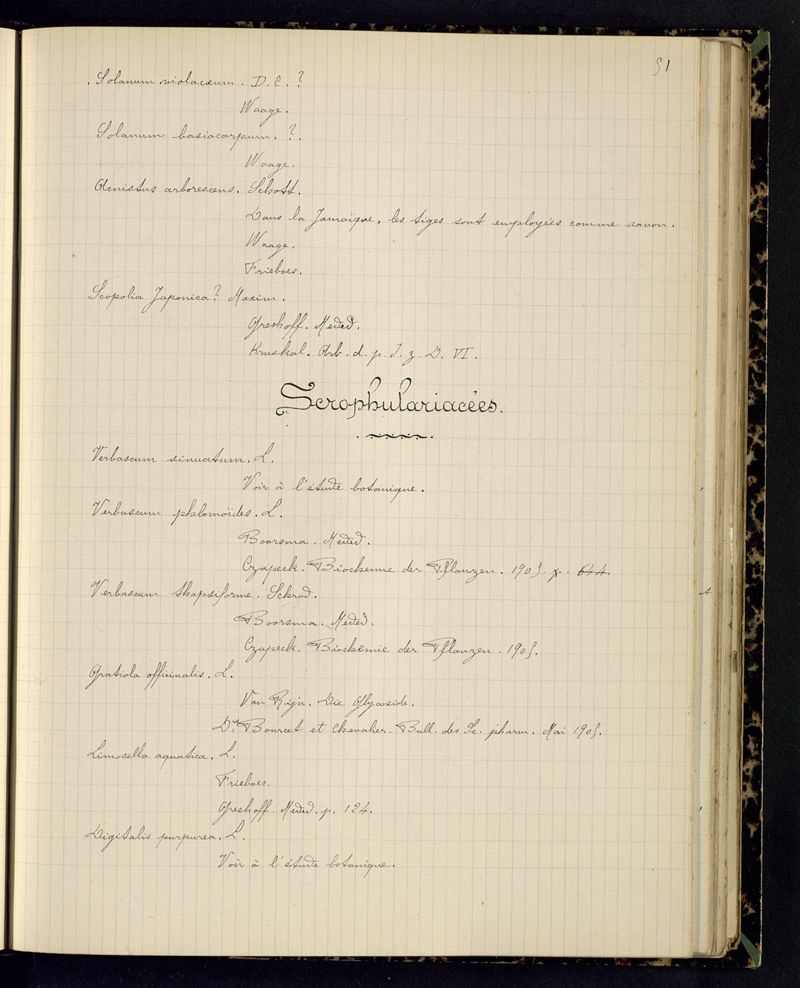 51
Solanum violaceum. D.C.?
Waage.
Solanum basiocarpum. ?.
Waage.
Acnistus arborescens. Schott.
Dans la Jamaïque, les tiges sont employées comme savon.
Waage.
Frieboes.
Scopolia Japonica? Maxim.
Greshoff. Meded.
Kruskal. Arb. d. p. I. z. D. VI.
Scrophulariacées.
Verbascum sinuatum. L.
Voir à l'étude botanique.
Verbascum phlomoïdes. L.
Boorsma. Meded.
Czapeck. Biochemie der Pflanzen. 1905. p. 644.
Verbascum thapsiforme. Schrad.
Boorsma. Meded.
Czapeck. Biochemie der Pflanzen. 1905.
Gratiola officinalis. L.
Van Rijn. Die Glycoside.
Drs Bourcet et Chevalier. Bull. des Sc. pharm. Mai 1905.
Limosella aquatica. L.
Frieboes.
Greshoff. Meded. p. 124.
Digitalis purpurea. L.
Voir à l'étude botanique.